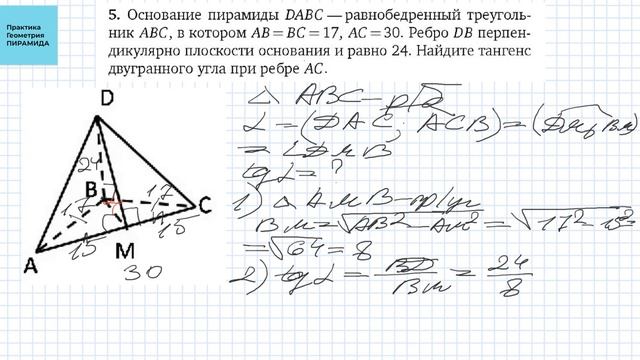 Практика
Геометрия
ПИРАМИДА
5. Основание пирамиды DABC — равнобедренный треуголь-
ник ABC, в котором AB = BC = 17, AC = 30. Ребро DB перпен-
дикулярно плоскости основания и равно 24. Найдите тангенс
двугранного угла при ребре AC.
D
24
B
17
17
C
15
M
15
A
30
△ ABC – р/б
α = (DAC; ACB) = (DM; BM)
= ∠DMB
tg α = ?
1) △ AMB – пр/уг
BM = √AB² – AM² = √17² – 15²
= √64 = 8
2) tg α = BD/BM = 24/8